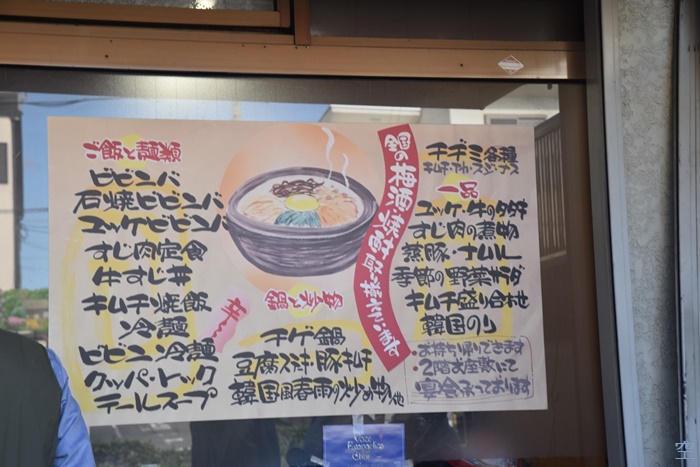 ご飯と麺類
ビビンバ
石焼ビビンバ
ユッケビビンバ
すじ肉定食
牛すじ丼
キムチン焼飯
冷麺
ビビン冷麺
クッパ・トック
テールスープ
辛~
鍋と炒物
チゲ鍋
豆腐スキ 豚キムチ
韓国風春雨の炒め物 他
全国の梅酒、焼酎取り揃えています
チヂミ各種
一品
ユッケ・牛のタタキ
すじ肉の煮物
蒸豚・ナムル
季節の野菜サラダ
キムチ盛り合わせ
韓国のり
・お持ち帰りできます
・2階お座敷にて
宴会承っております
空